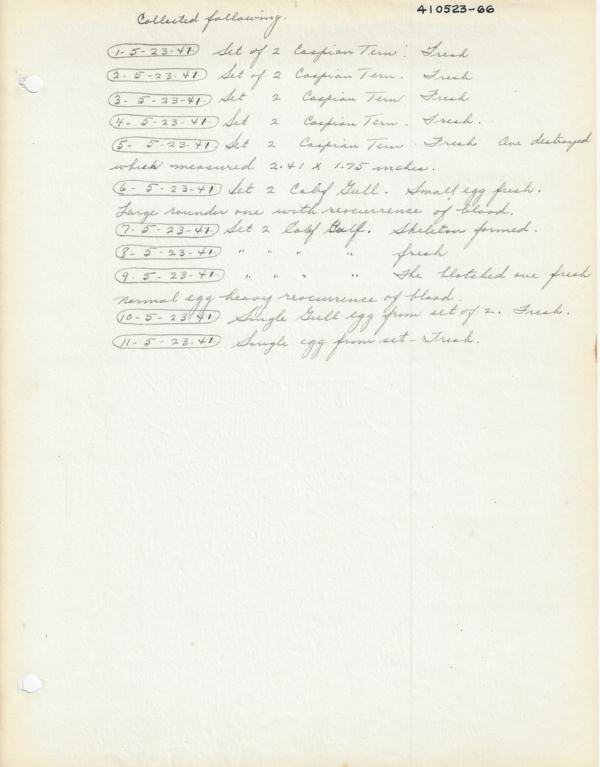 410523-66
Collected following.
1-5-23-41 Set of 2 Caspian Tern. Fresh
2-5-23-41 Set of 2 Caspian Tern. Fresh
3-5-23-41 Set 2 Caspian Tern Fresh
4-5-23-41 Set 2 Caspian Tern. Fresh.
5-5-23-41 Set 2 Caspian Tern. Fresh One destroyed
which measured 2.41 x 1.75 inches.
6-5-23-41 Set 2 Calif Gull. Small egg fresh.
Large rounder one with reocurrence of blood.
7-5-23-41 Set 2 Calif. Skeleton formed.
8-5-23-41 " " " " fresh
9-5-23-41 " " " " The blotched one fresh
normal egg heavy reocurrence of blood.
10-5-23-41 Single Gull egg from set of 2. Fresh.
11-5-23-41 Single egg from set - Fresh.